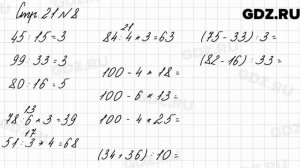 Стр. 21 N 8
GDZ.RU
45 : 15 = 3
99 : 33 = 3
80 : 16 = 5
13
78 : 6 * 3 = 39
17
51 : 3 * 4 = 68
21
84 : 4 * 3 = 63
100 - 4 * 18 =
100 - 6 * 13 =
100 - 4 * 25 =
(34 + 36) : 10 =
(75 - 33) : 3 =
(82 - 16) : 33 =
GDZ.RU